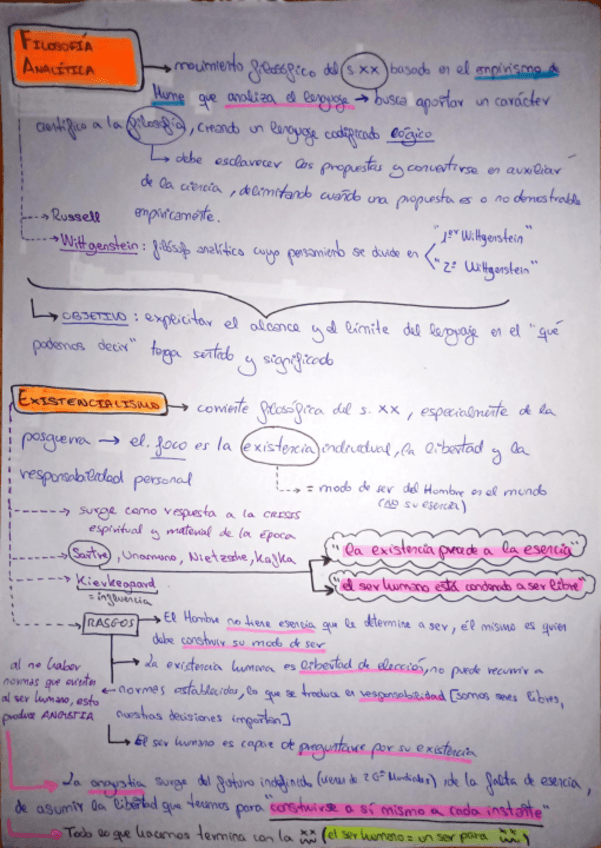 FILOSOFÍA
ANALÍTICA
→ movimiento filosófico del s. XX basado en el empirismo de
Hume que analiza el lenguaje → busca aportar un carácter
científico a la filosofía, creando un lenguaje codificado lógico
↳ debe esclarecer las propuestas y convertirse en auxiliar
de la ciencia, delimitando cuándo una propuesta es o no demostrable
empíricamente.
→ Russell
→ Wittgenstein: filósofo analítico cuyo pensamiento se divide en
"1er Wittgenstein"
"2º Wittgenstein"
↳ OBJETIVO: explicitar el alcance y el límite del lenguaje en el "qué
podemos decir" tenga sentido y significado
EXISTENCIALISMO → corriente filosófica del s. XX, especialmente de la
posguerra → el foco es la existencia individual, la libertad y la
responsabilidad personal
→ = modo de ser del Hombre en el mundo
(NO su esencia)
→ surge como respuesta a la CRISIS
espiritual y material de la época
→ Sartre, Unamuno, Nietzsche, Kafka
"la existencia precede a la esencia"
"el ser humano está condenado a ser libre"
→ Kierkegaard
= influencia
RASGOS → El Hombre no tiene esencia que le determine a ser, él mismo es quien
debe construir su modo de ser
→ La existencia humana es libertad de elección, no puede recurrir a
normas establecidas, lo que se traduce en responsabilidad [somos seres libres,
nuestras decisiones importan]
al no haber
normas que orienten
al ser humano, esto
produce ANGUSTIA
↳ El ser humano es capaz de preguntarse por su existencia
→ La angustia surge del futuro indefinido (veníamos de 2 Gª Mundiales), de la falta de esencia,
de asumir la libertad que tenemos para construirse a sí mismo a cada instante"
→ Todo lo que hacemos termina con la (el ser humano = un ser para )